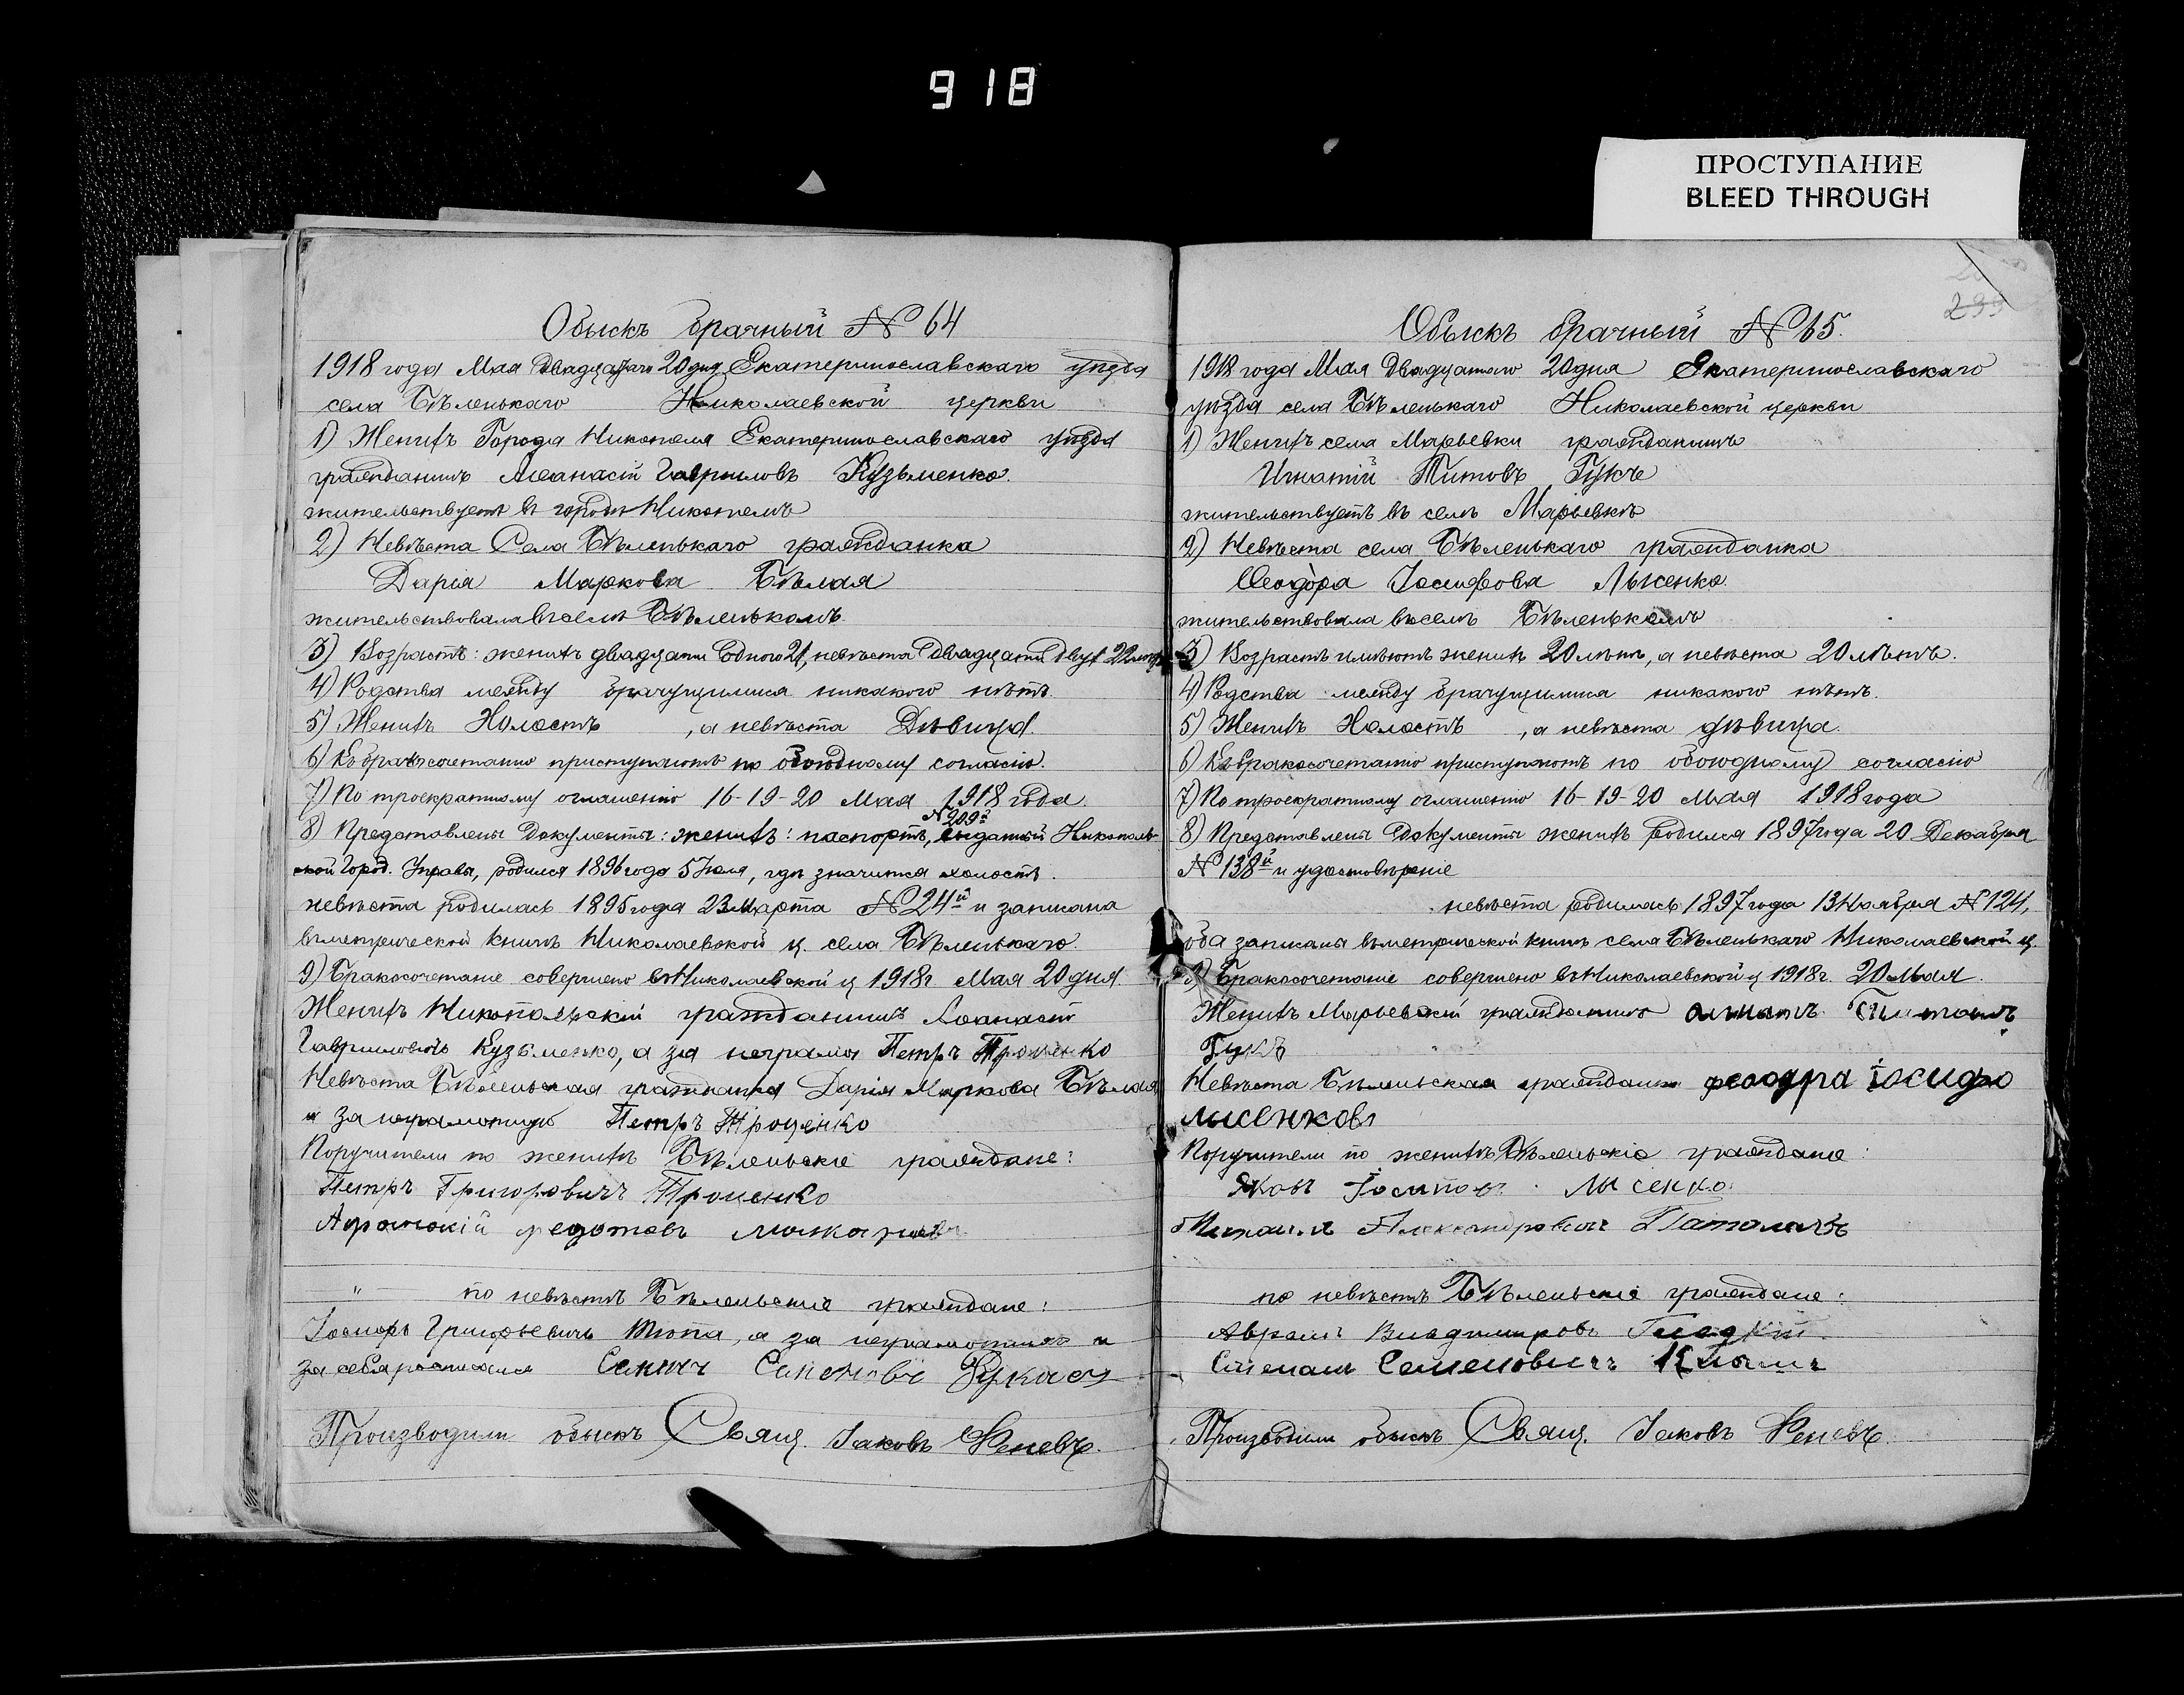 918
ПРОСТУПАНИЕ
BLEED THROUGH
Обыскъ брачный № 64
1918 года Мая Двадцатаго 20 дня Екатеринославскаго уѣзда
села Бѣленькаго Николаевской церкви
1) Женихъ Города Никополя Екатеринославскаго уѣзда
гражданинъ Аѳанасій Гавриловъ Кузьменко.
жительствуетъ въ городѣ Никополѣ
2) Невѣста Села Бѣленькаго гражданка
Дарія Маркова Бѣлая
жительствовала въ селѣ Бѣленькомъ.
3) Возрастъ: женихъ двадцати одного 21, невѣста Двадцати двух 22
4) Родства между брачущимися никакого нѣтъ.
5) Женихъ Холостъ, а невѣста Дѣвица.
6) Къ бракосочетанію приступаютъ по обоюдному согласію.
7) По троекратному оглашенію 16-19-20 Мая 1918 года.
№ 209й
8) Представлены Документы: женихъ: паспортъ, выданный Никополь-
ской Город. Управы, родился 1896 года 5 Іюля, гдѣ значится холостъ.
невѣста родилась 1895 года 23 Марта № 24й и записана
въ метрической книгѣ Николаевской ц. села Бѣленькаго.
9) Бракосочетаніе совершено въ Николаевской ц 1918 г. Мая 20 дня.
Женихъ Никопольскій гражданинъ Аѳанасій
Гавриловичъ Кузьменко, а за неграмо Петръ Троценко
Невѣста Бѣленьская гражданка Дарія Маркова Бѣлая
а за неграмотную Петръ Троценко
Поручители по женихѣ Бѣленьскіе граждане:
Петръ Григоровичъ Троценко
федотовъ
" по невѣстѣ Бѣленьскіе граждане:
Іосифъ Григорьевичъ а за неграмотнаго и
за себя росписался
Производили обыскъ Свящ. Іаковъ
239
Обыскъ брачный № 65.
1918 года Мая Двадцатаго 20 дня Екатеринославскаго
уѣзда села Бѣленькаго Николаевской церкви
1) Женихъ села Марьевки гражданинъ
Игнатій Титовъ Гукъ
жительствуетъ въ селѣ Марьевкѣ
2) Невѣста села Бѣленькаго гражданка
Ѳеодора Іосифова Лысенко.
жительствовала въ селѣ Бѣленькомъ
3) Возрастъ имѣютъ женихъ 20 лѣтъ, а невѣста 20 лѣтъ.
4) Родства между брачущимися никакого нѣтъ.
5) Женихъ Холостъ, а невѣста дѣвица.
6) Къ бракосочетанію приступаютъ по обоюдному согласію
7) По троекратному оглашенію 16-19-20 Мая 1918 года
8) Представлены Документы женихъ родился 1897 года 20 Декабря
№ 138й и удостовѣреніе
невѣста родилась 1897 года 13 Ноября № 124,
оба записаны въ метрической книгѣ села Бѣленькаго Николаевской ц.
9) Бракосочетаніе совершено въ Николаевской ц 1918 г. 20 Мая.
Женихъ Марьевскій гражданинъ
Гукъ
Невѣста Бѣленьская гражданка феодра іосифо
лисенкова
Поручители по женихѣ Бѣленьскіе граждане:
Яковъ Лисенко
Александровичъ
по невѣстѣ Бѣленьскіе граждане:
Аврамъ Владимировъ
Степанъ Семеновичъ
Производили обыскъ Свящ. Іаковъ